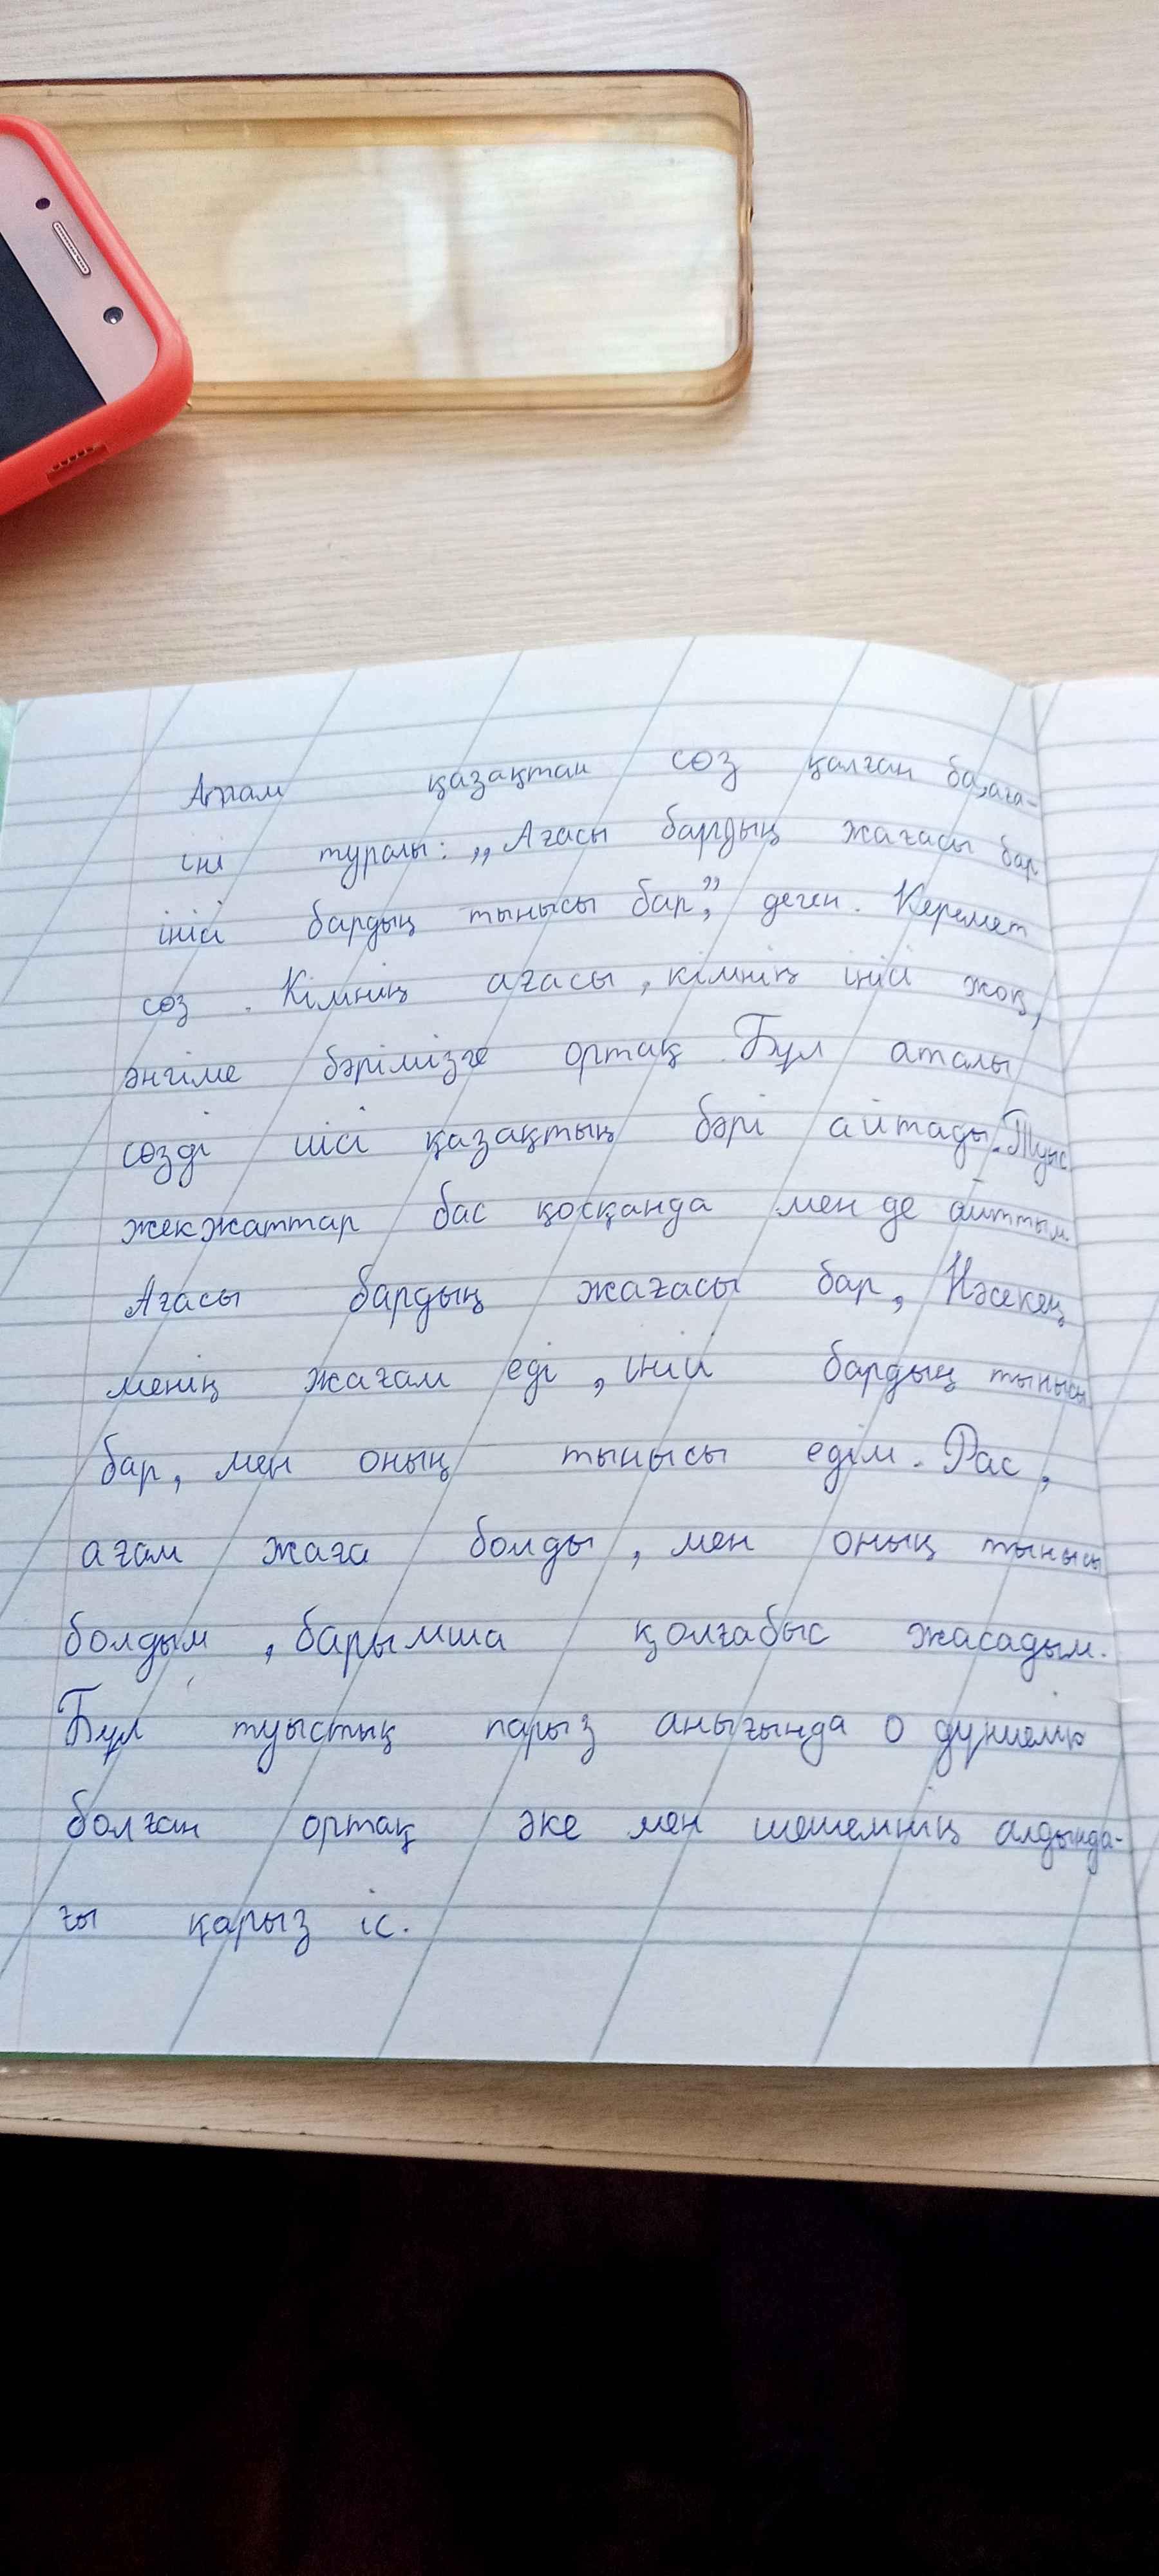 қазақтан сөз қалған ба, аға-
іні туралы: „Ағасы бардың жағасы бар
інісі бардың тынысы бар”, деген. Керемет
сөз. Кімнің ағасы, кімнің інісі жоқ,
әнгіме бәрімізге ортақ. Бұл аталы
сөзді иісі қазақтың бәрі айтады. Туыс
жекжаттар бас қосқанда мен де айттым.
Ағасы бардың жағасы бар, Нәсекең
менің жағам еді, інісі бардың тынысы
бар, мен оның тынысы едім. Рас,
ағам жаға болды, мен оның тынысы
болдым, барымша қолғабыс жасадым.
Бұл туыстық парыз анығында о дүниелік
болған ортақ әке мен шешемнің алдында-
ғы қарыз іс.